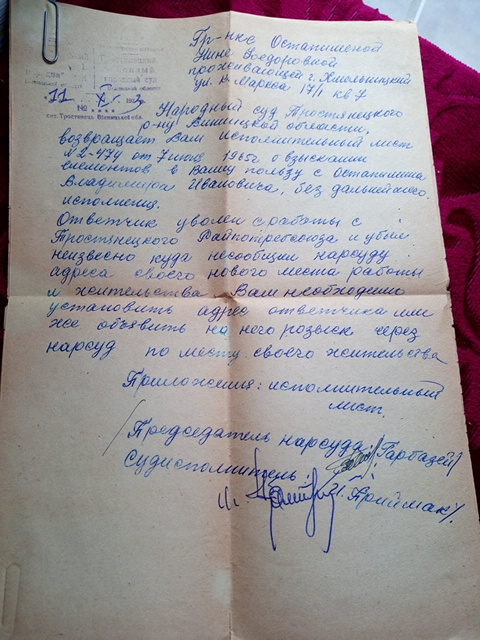 Гр-нке Осташиной
Нине Федоровной
прохсевающей г. Хмельницкий
ул. К. Маркса 17/1 кв 7
11
№
смт. Тростянець, Вінницької обл.
Народный суд Тростянецкого
р-ну Винницкой области,
возвращает Вам исполнительный лист
№2-474 от 7 июня 1965г о взыскании
елементов в Вашу пользу с Осташина
Владимира Ивановича, без дальнейшего
исполнения.
Ответчик уволен с работы с
Тростянецкого Райпотребсоюза и убыл
неизвесно куда несообщив нарсуду
адреса своего нового места работы
и жительства. Вам необходимо
установить адрес ответчика или
же объявить на него розыск через
нарсуд по месту своего жительства
Приложения: исполнительный
лист.
Председатель нарсуда: /Гарбазей/
Судисполнитель:
/Приймак/.